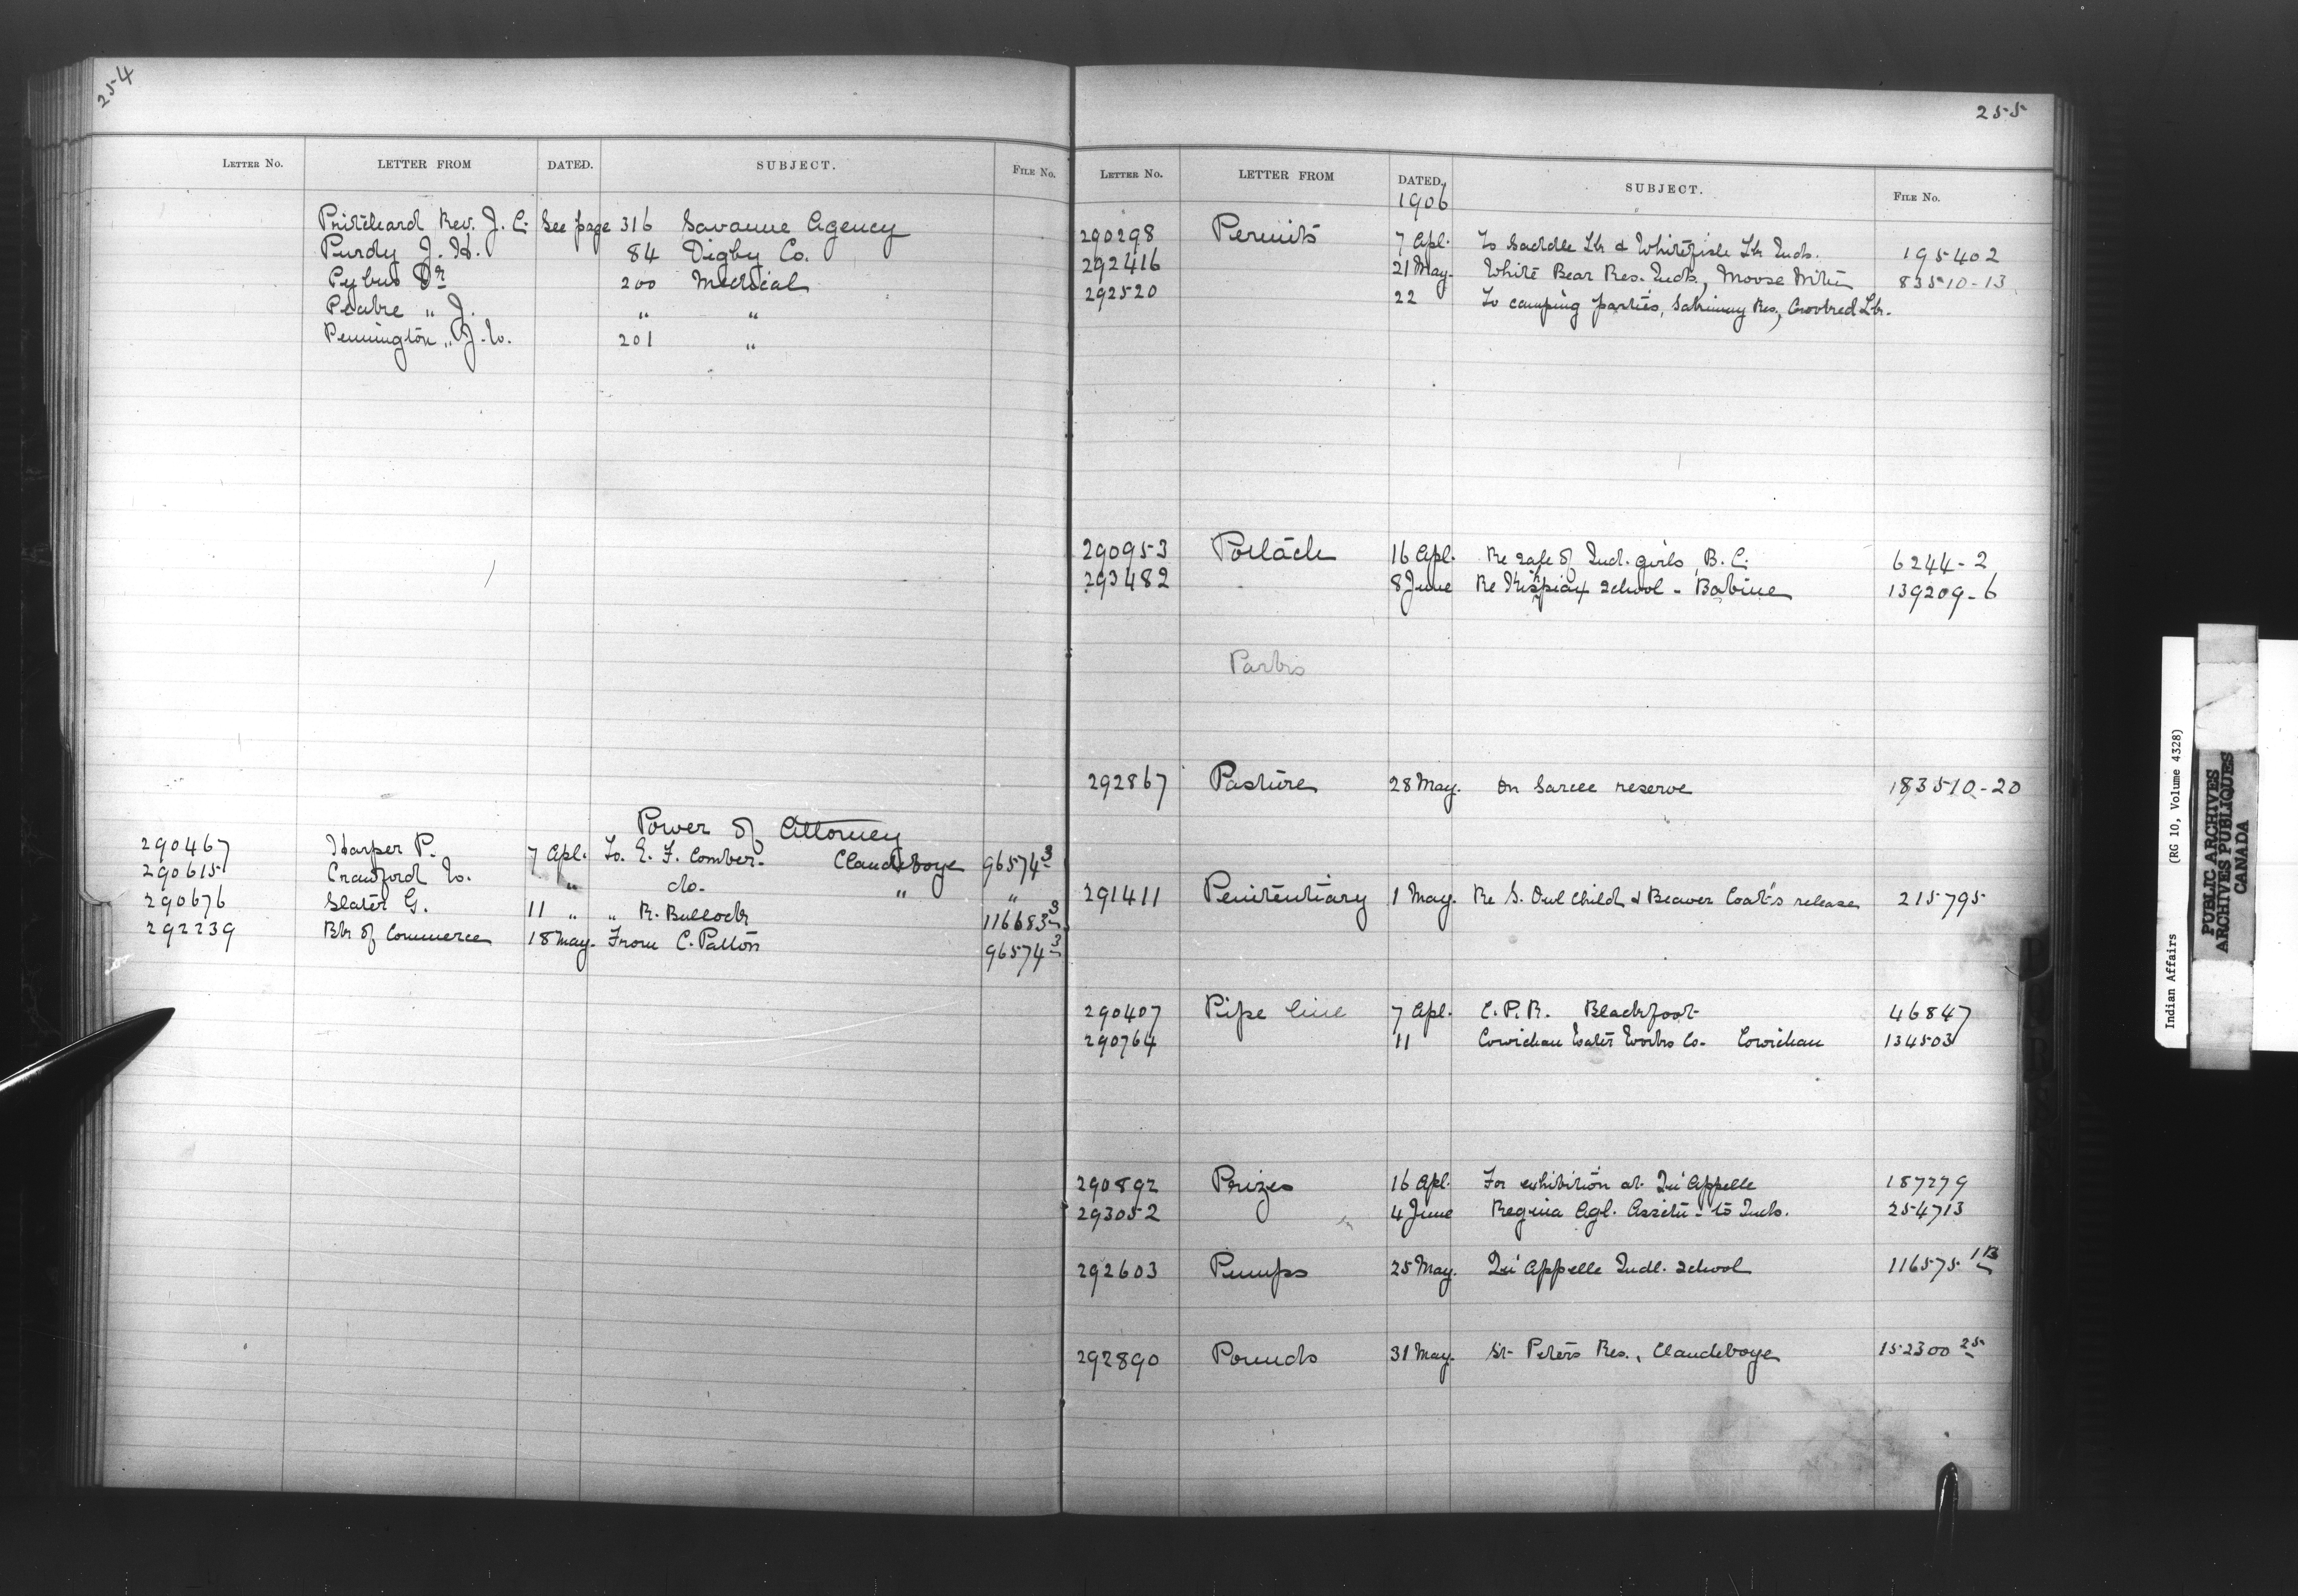 254
LETTER NO. LETTER FROM DATED. SUBJECT. FILE NO.
Pritchard Rev. J. C. See page 316 Savanne Agency
Purdy J. H. 84 Digby Co.
Pybus Dr 200 Medical
Peake " J. " "
Pennington " J. W. 201 "
Power of Attorney
290467 Harper P. 7 Apl. To. E. F. Comber. Clandeboye 96574-3
290615 Crawford W. " do. " "
290676 Slater G. 11 " " R. Bullock 116683-3
292239 Bk of Commerce 18 May. From C. Patton 96574-3
255
LETTER NO. LETTER FROM DATED. SUBJECT. FILE NO.
1906
290298 Permits 7 Apl. To Saddle Lk & Whitefish Lk Inds. 195402
292416 21 May. White Bear Res. Inds, Moose Mtn 83510-13
292520 22 To camping parties, Res, Crooked Lk.
290953 Potlach 16 Apl. Re sale of Ind. girls, B. C. 6244-2
293482 8 June Re Kispiax School - Babine 139209-6
Parks
292867 Pasture 28 May. On Sarcee reserve 183510-20
291411 Penitentiary 1 May. Re S. Owl Child & Beaver Coat's release 215795
290407 Pipe line 7 Apl. C. P. R. Blackfoot 46847
290764 11 Cowichan Water Works Co. Cowichan 134503
290892 Prizes 16 Apl. For exhibition at Qu'Appelle 187279
293052 4 June Regina Agl. Assctn - to Inds. 254713
292603 Pumps 25 May. Qu'Appelle Indl. School 116575-1B
292890 Pounds 31 May. St Peters Res., Clandeboye 152300-25
Indian Affairs (RG 10, Volume 4328)
PUBLIC ARCHIVES
ARCHIVES PUBLIQUES
CANADA